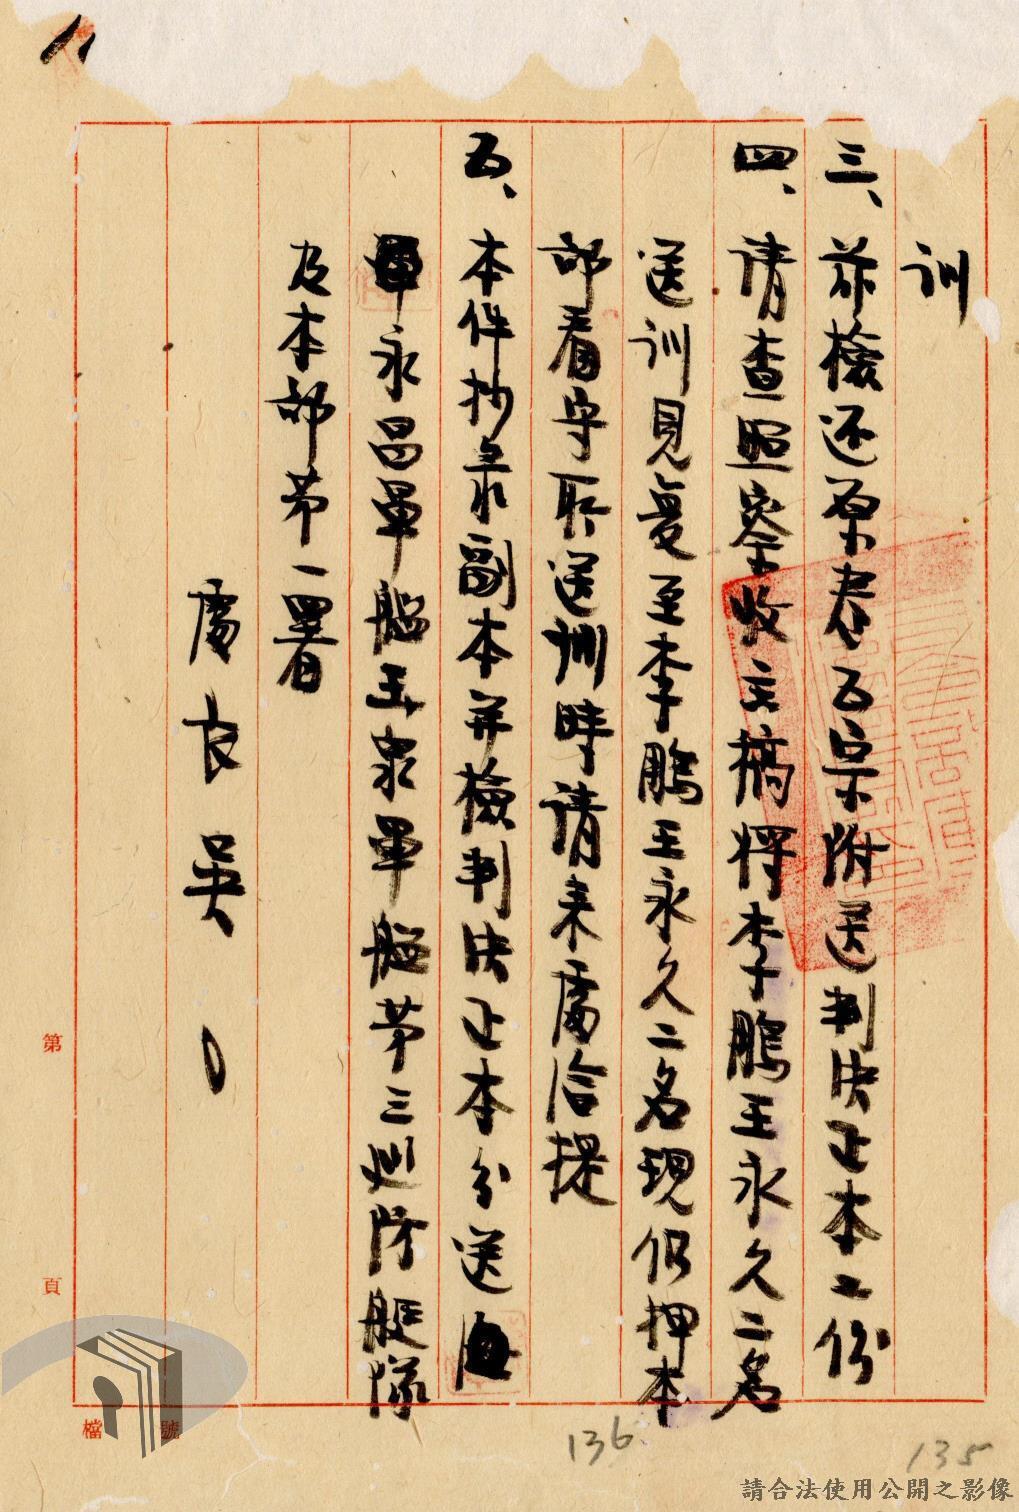 训
三、茲檢还原卷五宗附送判决正本二份
四、请查照察收文摘将李鵬王永久二名
送训見复至李鵬王永久二名現仍押本
部看守所送训時请来處洽提
五、本件抄录副本并檢判决正本分送海
軍永昌軍艦玉泉軍艦第三巡防艇隊
及本部第一署
處長吳
第
頁
檔
號
136
135
請合法使用公開之影像